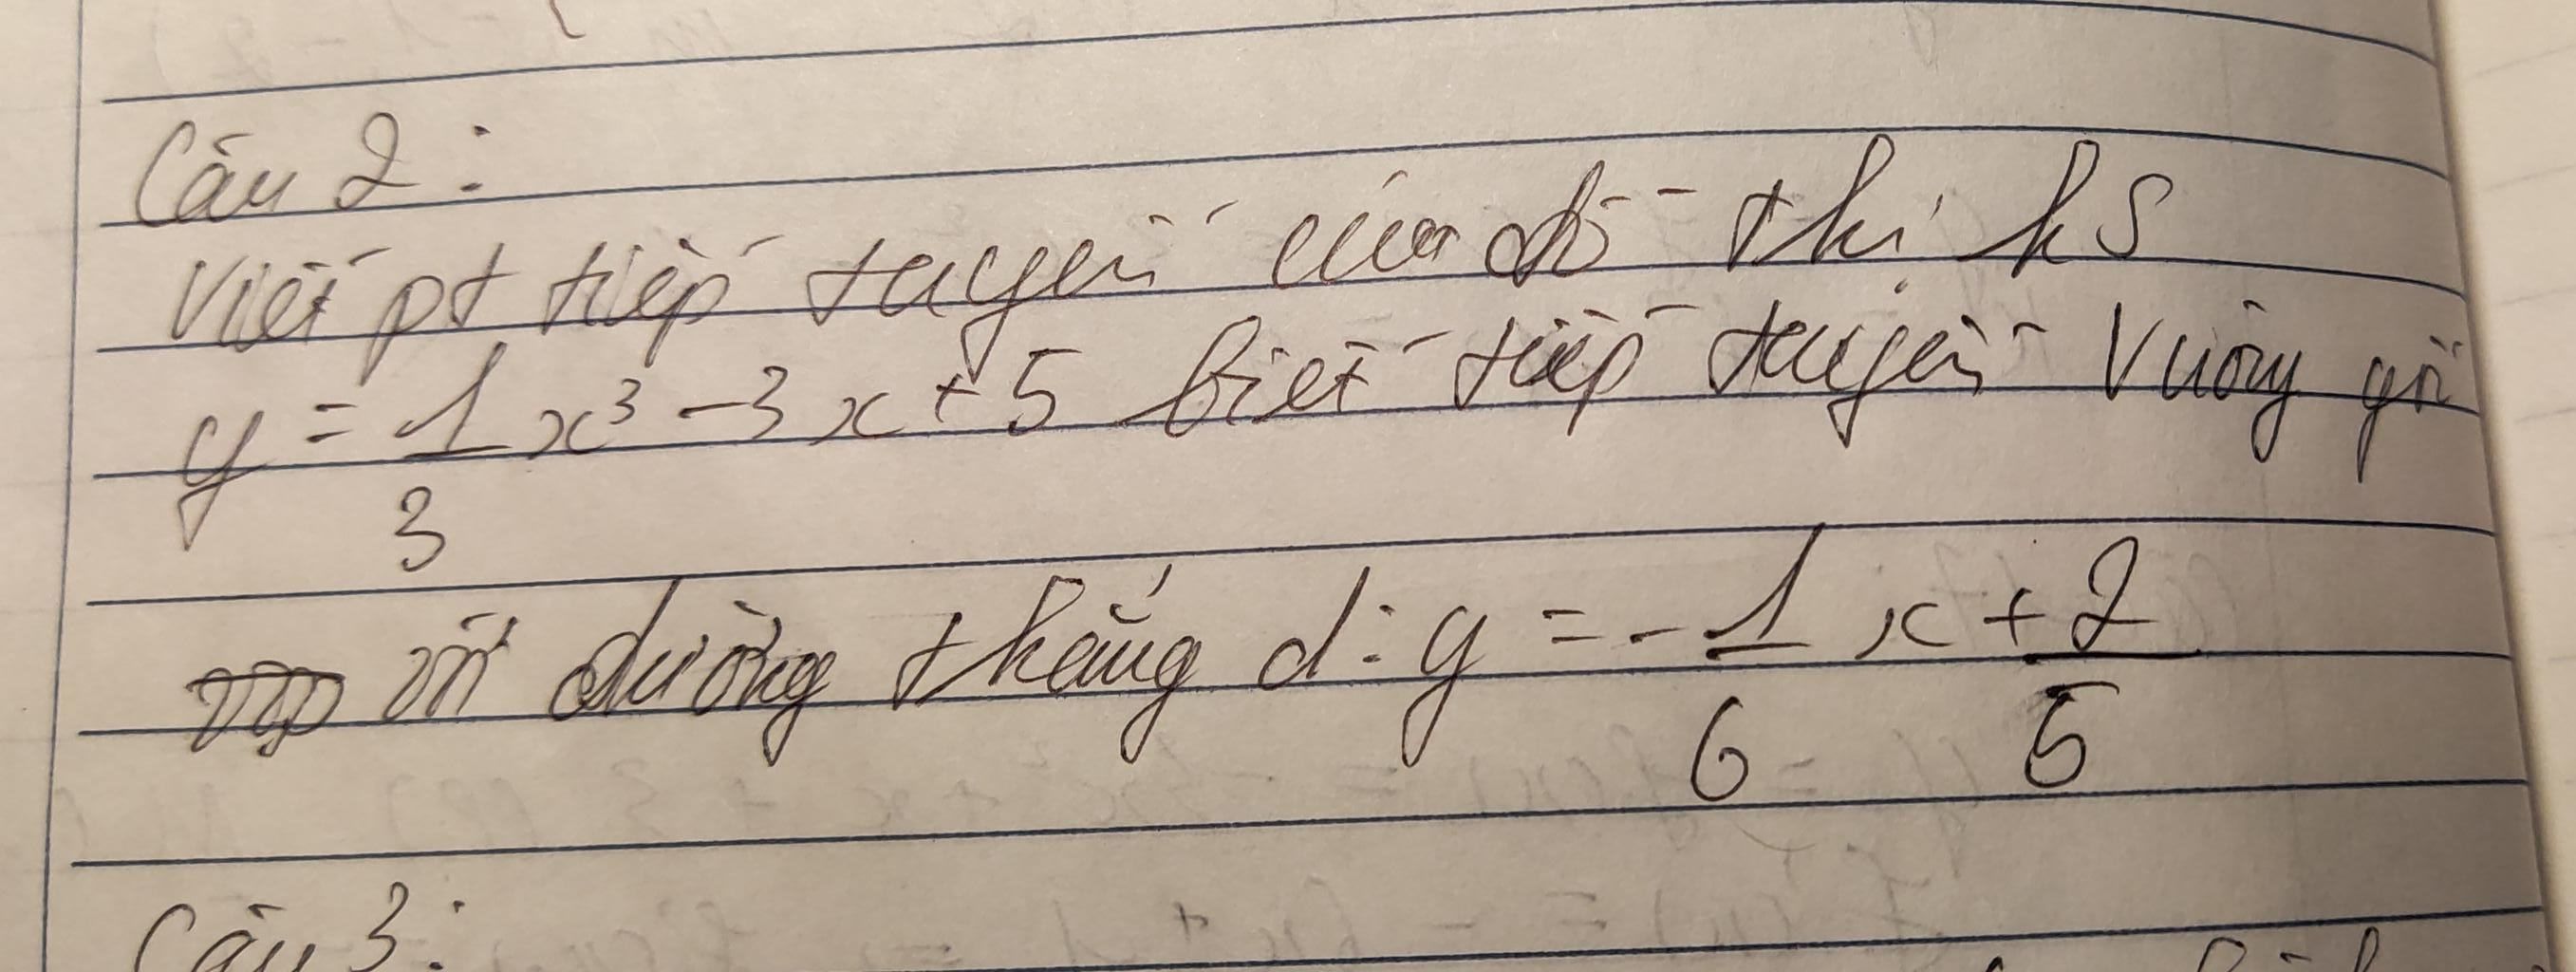 Câu 2:
Viết pt tiếp tuyến của đồ thị hs
y = 1/3 x³ - 3x + 5 biết tiếp tuyến vuông góc
với đường thẳng d: y = - 1/6 x + 2/5
Câu 3: